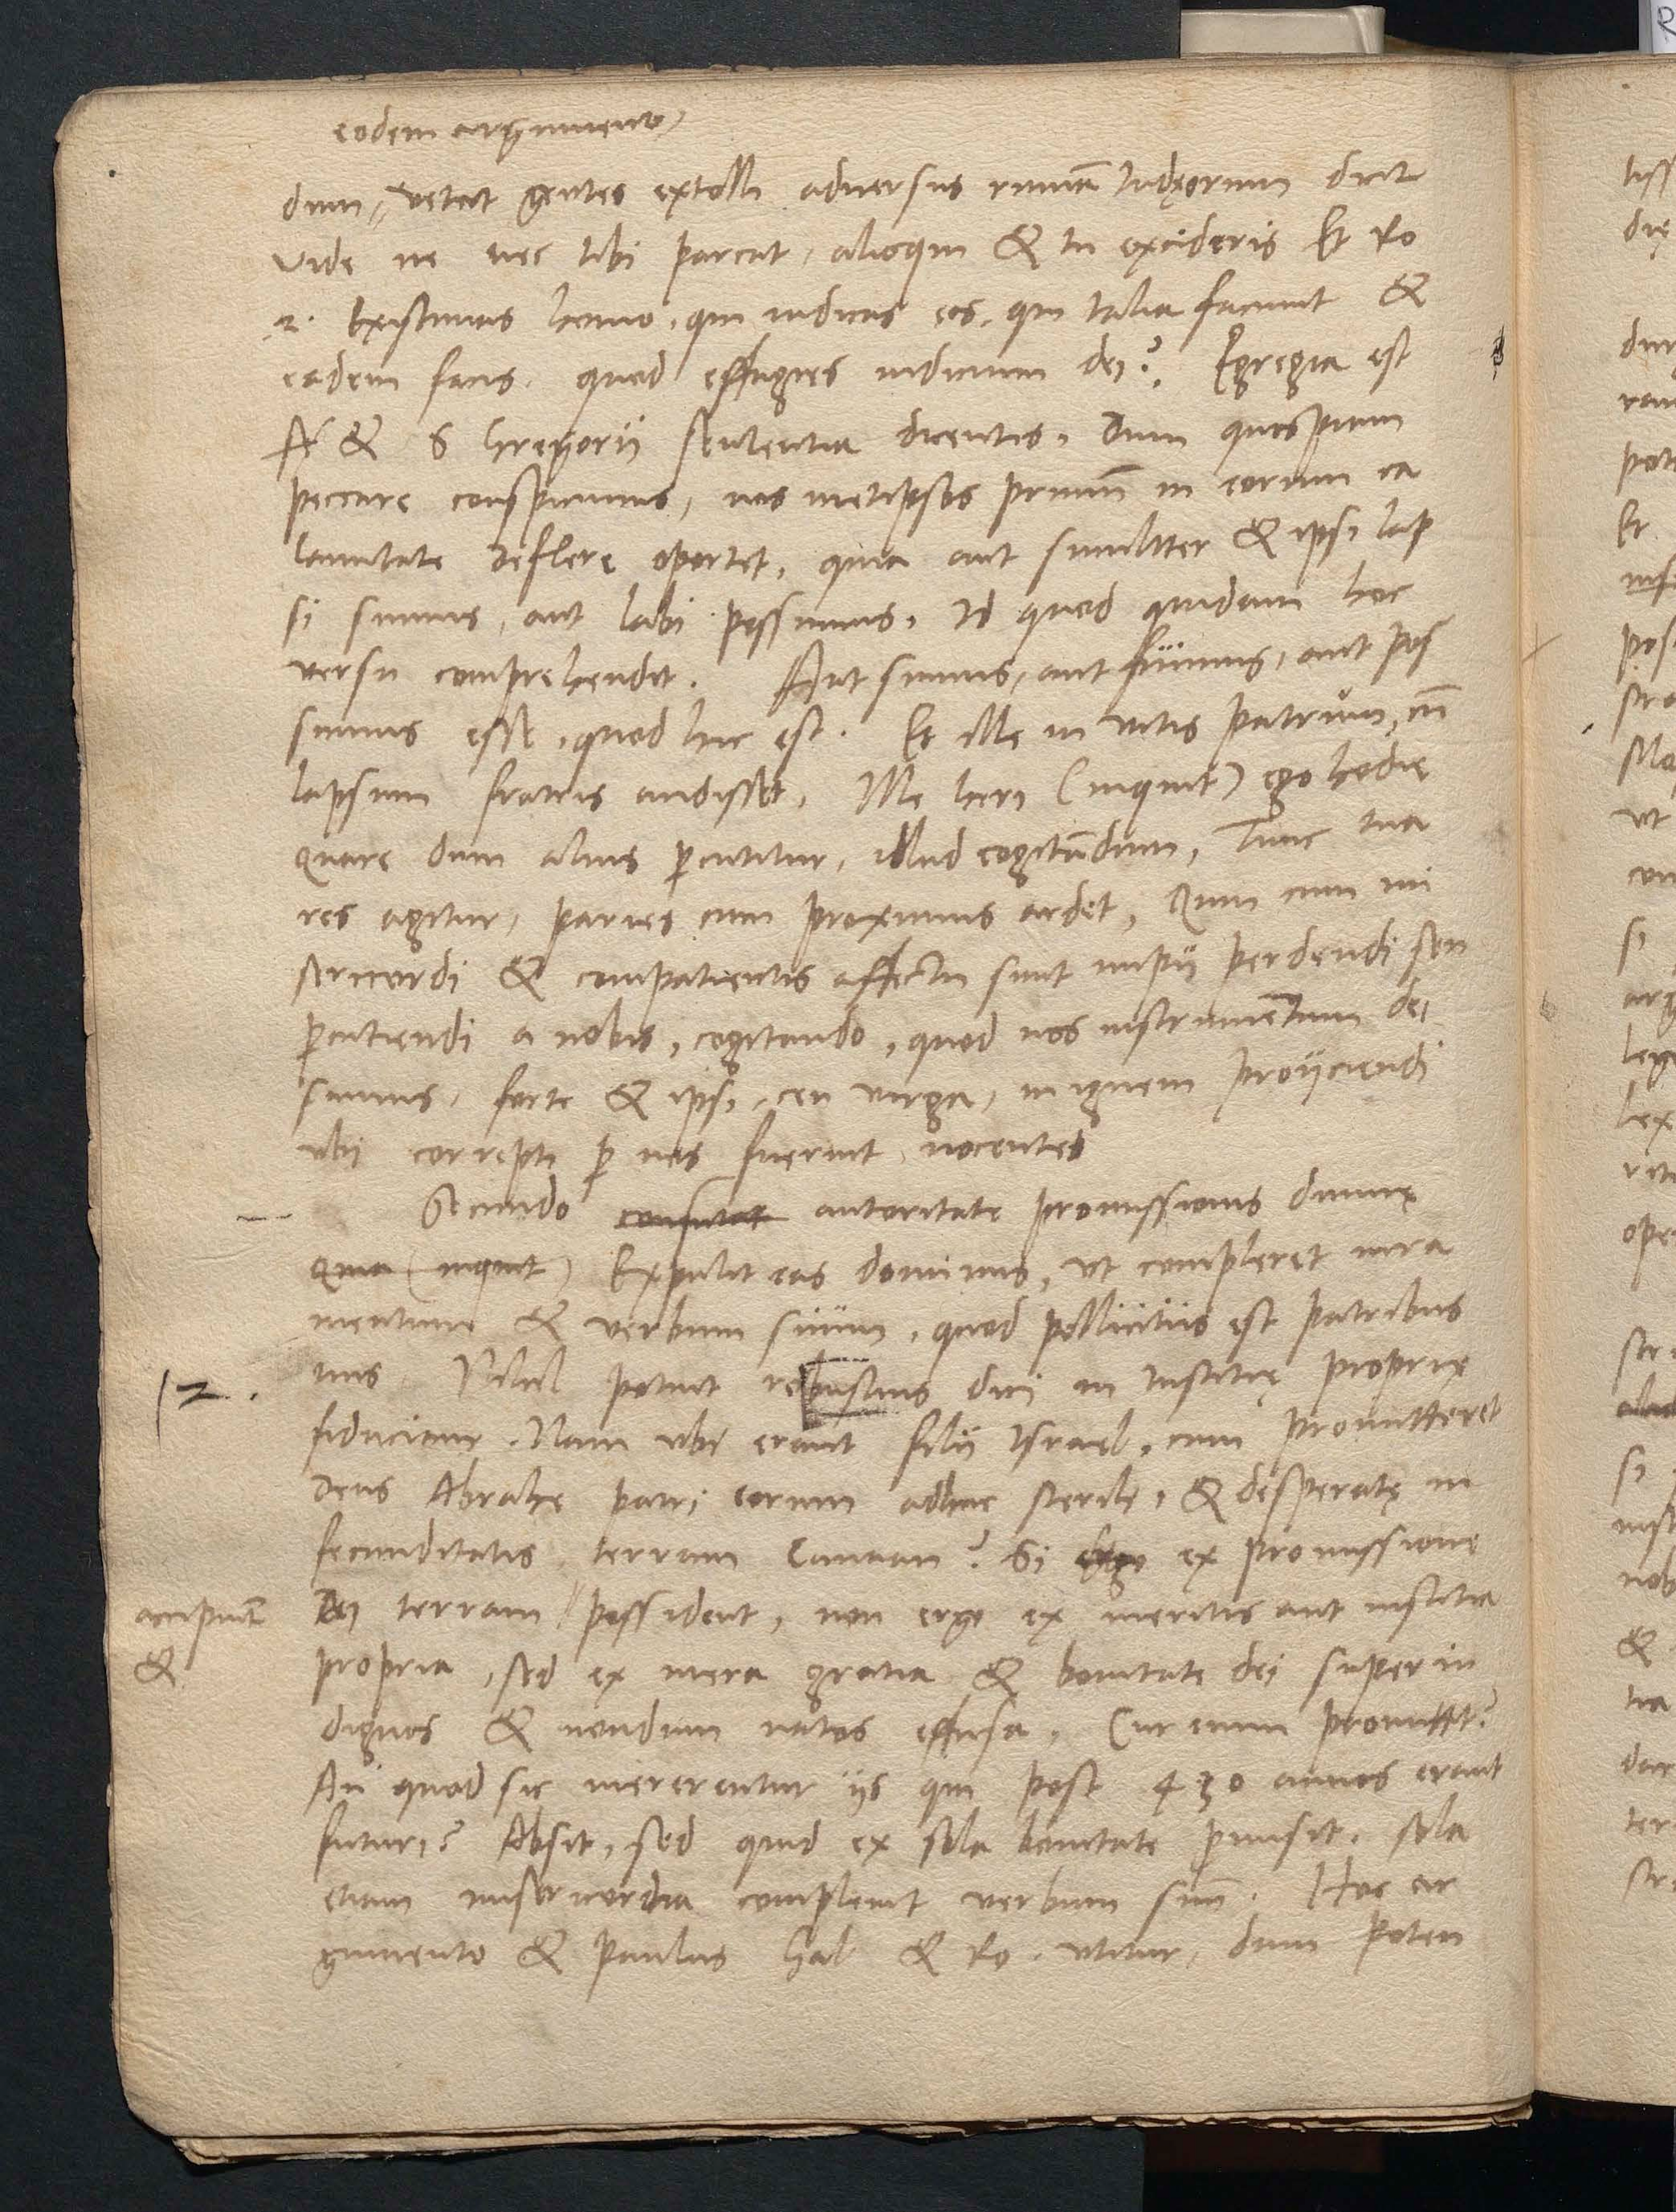 eodem argumento
dum, vetat gentes extolli aduersus ruinã Iudęorum dicit
Vide ne nec tibi parcat, alioqui & tu excideris Et Ro
2. Existimas homo, qui iudicas eos, qui talia faciunt &
eadem facis, quod effugies iudicium dei? Egregia est
& S Gregorij sententia dicentis, Dum quospiam
peccare conspicimus, nos metipsos primũ in eorum ca
lamitate deflere oportet, quia aut similiter & ipsi lap
si sumus, aut labi possumus, Id quod quidam hoc
versu comprehendit. Aut sumus, aut fuimus, aut pos
sumus esse, quod hic est. Et ille in vitis patrum, cũ
lapsum fratris audisset, Ille heri (inquit) ego hodie
Quare dum alius percutitur, illud cogitãdum, Tunc tua
res agitur, paries cum proximus ardet, Quin cum mi
sericordi & compatientis affectu sunt impij perdendi seu
percutiendi a nobis, cogitando, quod nos instrumẽtum dei
simus, forte & ipsi, ceu virga, in ignem proijciendi
vbi correpti per nos fuerint nocentes
Secundo confutat autoritate promissionis diuinę
Quia (inquit) Expulit eas dominus, vt compleret iura
mentum & verbum suum, quod pollicitus est patribus
tuis. Nihil potuit robustius dici in Iustitię proprię
fiduciam. Nam vbi erant filij Israel, cum promitteret
Deus Abrahę patri eorum adhuc sterili, & desperatę in
fecunditatis terram Canaan? Si ergo ex promissione
accipiunt
&
Dei terram possident, non ergo ex meritis aut iustitia
propria, sed ex mera gratia & bonitate dei super in
dignos & nondum natos effusa, Cur enim promittit?
An quod sic mererentur ijs qui post 430 annos erant
futuri? Absit, sed quid ex sola bonitate promisit, sola
etiam misericordia compleuit verbum suũ. Hoc ar
gumento & Paulus Gal & Ro. vtitur, dum poten
12.